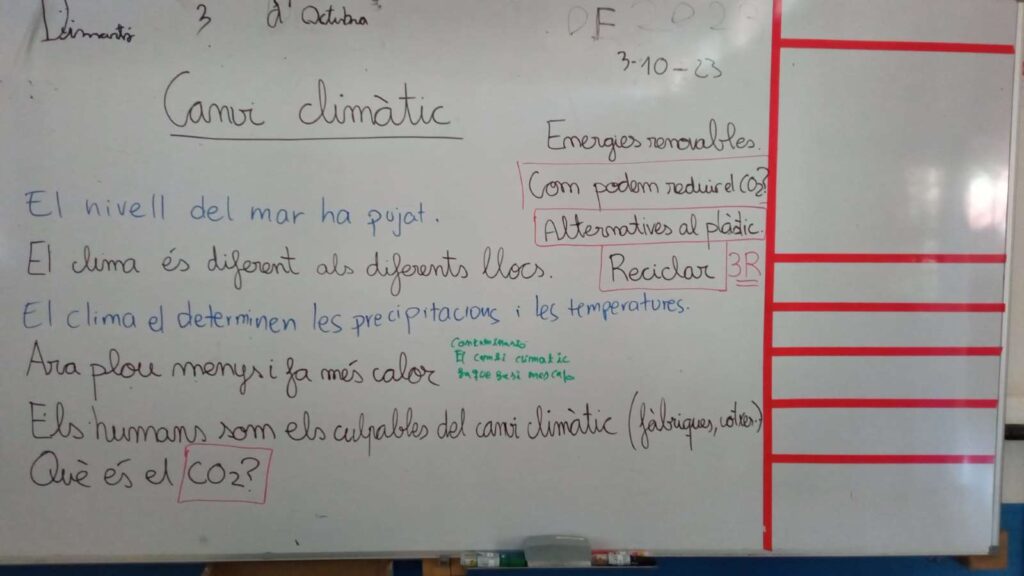 Dimarts 3 d'Octubre
3-10-23
Canvi climàtic
El nivell del mar ha pujat.
El clima és diferent als diferents llocs.
El clima el determinen les precipitacions i les temperatures.
Ara plou menys i fa més calor
El climatic
Els humans som els culpables del canvi climàtic (fàbriques, cotxes.)
Què és el CO2?
Energies renovables.
Com podem reduir el CO2?
Alternatives al plàstic.
Reciclar 3R